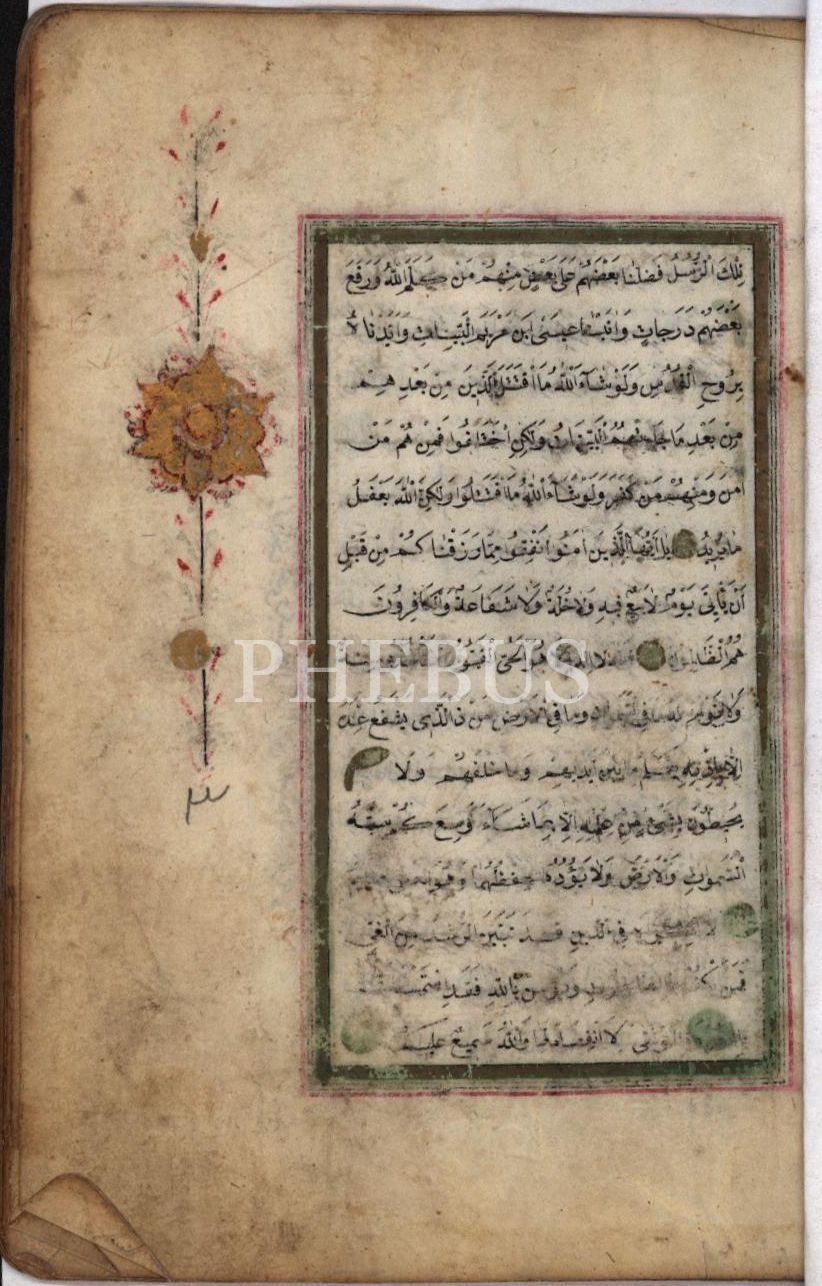 تِلْكَ الرُّسُلُ فَضَّلْنَا بَعْضَهُمْ عَلَى بَعْضٍ مِنْهُمْ مَنْ كَلَّمَ اللّٰهُ وَرَفَعَ
بَعْضَهُمْ دَرَجَاتٍ وَاٰتَيْنَا عِيسَى ابْنَ مَرْيَمَ الْبَيِّنَاتِ وَاَيَّدْنَاهُ
بِرُوحِ الْقُدُسِ وَلَوْ شَاءَ اللّٰهُ مَا اقْتَتَلَ الَّذِينَ مِنْ بَعْدِهِمْ
مِنْ بَعْدِ مَا جَاءَتْهُمُ الْبَيِّنَاتُ وَلٰكِنِ اخْتَلَفُوا فَمِنْهُمْ مَنْ
اٰمَنَ وَمِنْهُمْ مَنْ كَفَرَ وَلَوْ شَاءَ اللّٰهُ مَا اقْتَتَلُوا وَلٰكِنَّ اللّٰهَ يَفْعَلُ
مَا يُرِيدُ يَا اَيُّهَا الَّذِينَ اٰمَنُوا اَنْفِقُوا مِمَّا رَزَقْنَاكُمْ مِنْ قَبْلِ
اَنْ يَأْتِيَ يَوْمٌ لَا بَيْعٌ فِيهِ وَلَا خُلَّةٌ وَلَا شَفَاعَةٌ وَالْكَافِرُونَ
هُمُ الظَّالِمُونَ لَا اِلٰهَ هُوَ الْحَيُّ الْقَيُّومُ
وَلَا نَوْمٌ لَهُ مَا فِي السَّمٰوَاتِ وَمَا فِي الْاَرْضِ مَنْ ذَا الَّذِي يَشْفَعُ عِنْدَهُ
اِلَّا بِاِذْنِهِ يَعْلَمُ مَا بَيْنَ اَيْدِيهِمْ وَمَا خَلْفَهُمْ وَلَا
يُحِيطُونَ بِشَيْءٍ مِنْ عِلْمِهِ اِلَّا بِمَا شَاءَ وَسِعَ كُرْسِيُّهُ
السَّمٰوَاتِ وَالْاَرْضَ وَلَا يَؤُدُهُ حِفْظُهُمَا وَهُوَ
لَا فِي الدِّينِ قَدْ تَبَيَّنَ الرُّشْدُ مِنَ الْغَيِّ
فَمَنْ يَكْفُرْ بِاللّٰهِ فَقَدِ اسْتَمْسَكَ
الْوُثْقٰى لَا انْفِصَامَ لَهَا وَاللّٰهُ سَمِيعٌ عَلِيمٌ
م
PHEBUS